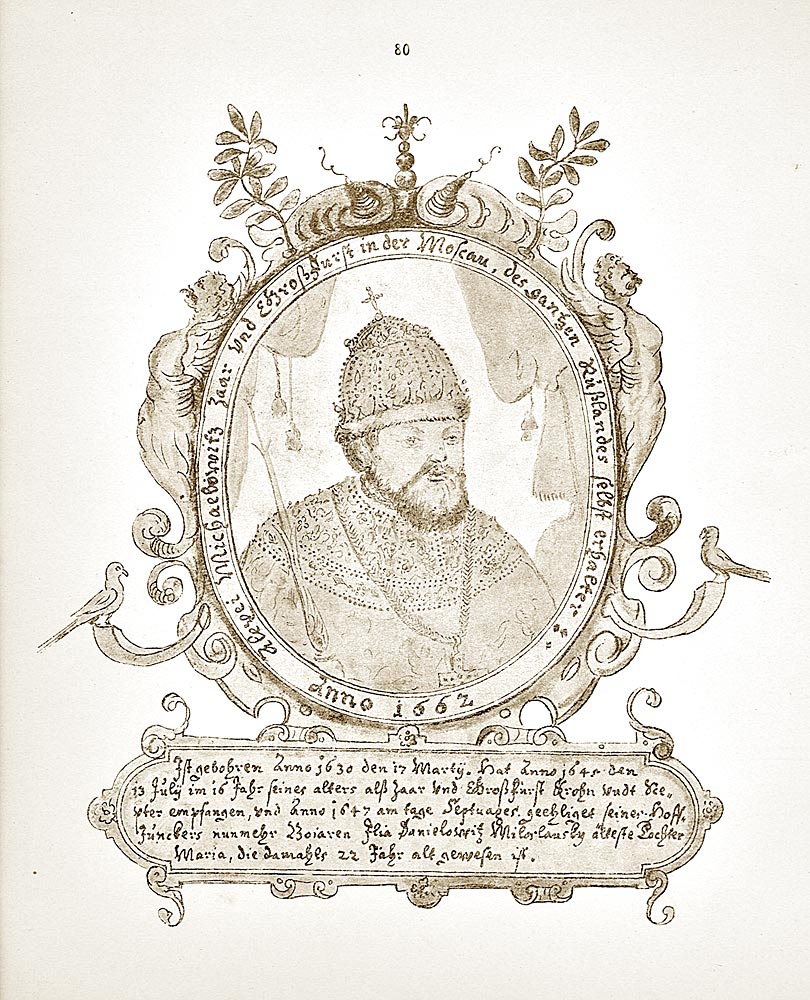 80
Alexei Michaelowitz Zaar vnd Großfürst in der Moscau, des gantzen Rußlandes selbst erhalter
Anno 1662
Ist gebohren Anno 1630 den 17 Martij. Hat Anno 1645 den
13 Julij im 16 Jahr seines alters alß Zaar vnd Großfürst Krohn vndt
empfangen, vnd Anno 1647 am tage Septuages. geehliget seines Hoff
Junckers nunmehr Boiaren Ilia Danielowitz Miloslansky älteste Tochter
Maria, die damahls 22 Jahr alt gewesen ist.